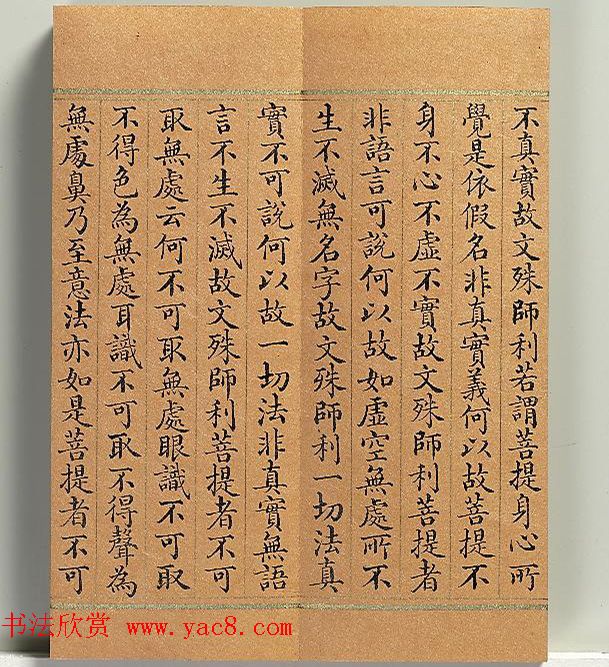 不真實故文殊師利若謂菩提身心所
覺是依假名非真實義何以故菩提不
身不心不虛不實故文殊師利菩提者
非語言可說何以故如虛空無處所不
生不滅無名字故文殊師利一切法真
實不可說何以故一切法非真實無語
言不生不滅故文殊師利菩提者不可
取無處云何不可取無處眼識不可取
不得色為無處耳識不可取不得聲為
無處鼻乃至意法亦如是菩提者不可
书法欣赏 www.yac8.com